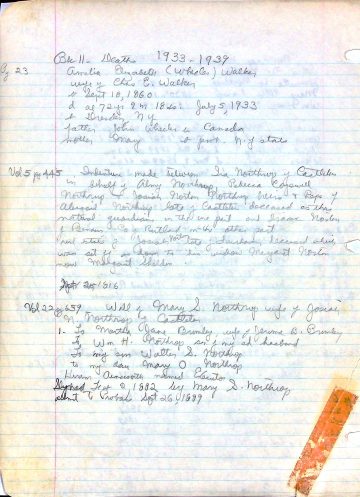 Bk 11 - Deaths 1933-1939
Pg 23 Amelia Elizabeth (Wheeler) Walker
wife of Chas E. Walker
b Sept 18, 1860
d at 72 yr 9 m 18 da July 5, 1933
b Dresden, N.Y.
father John Wheeler b Canada
mother Mary b prob. N.Y. state
Vol 5 pg 445 - Indenture made between Ira Northrup of Castleton
in behalf of Almy Northrop, Rebecca
Northrup & Josiah Norton Northrup heirs &
Northrop late of Castleton deceased as their
natural guardian on the one part and Isaac Norton
of Co Rutland on the other part
real state of Josiah Norton late of deceased which
was set off as dower to his widow Margaret Norton
now Margaret Sheldon
1816
Vol 22 pg 559 Will of Mary S. Northrup wife of Josiah
N. Northrop of Castleton
1- To Martha Jane Bromley, wife of Jerome B. Bromley
To Wm H. Northrop son of my husband
To my son Walter S. Northrop
to my dau Mary O Northrop
Hiram Ainsworth named
Signed Sept 2, 1882 Sig Mary S. Northrop
admit to Probate Sept 26, 1889